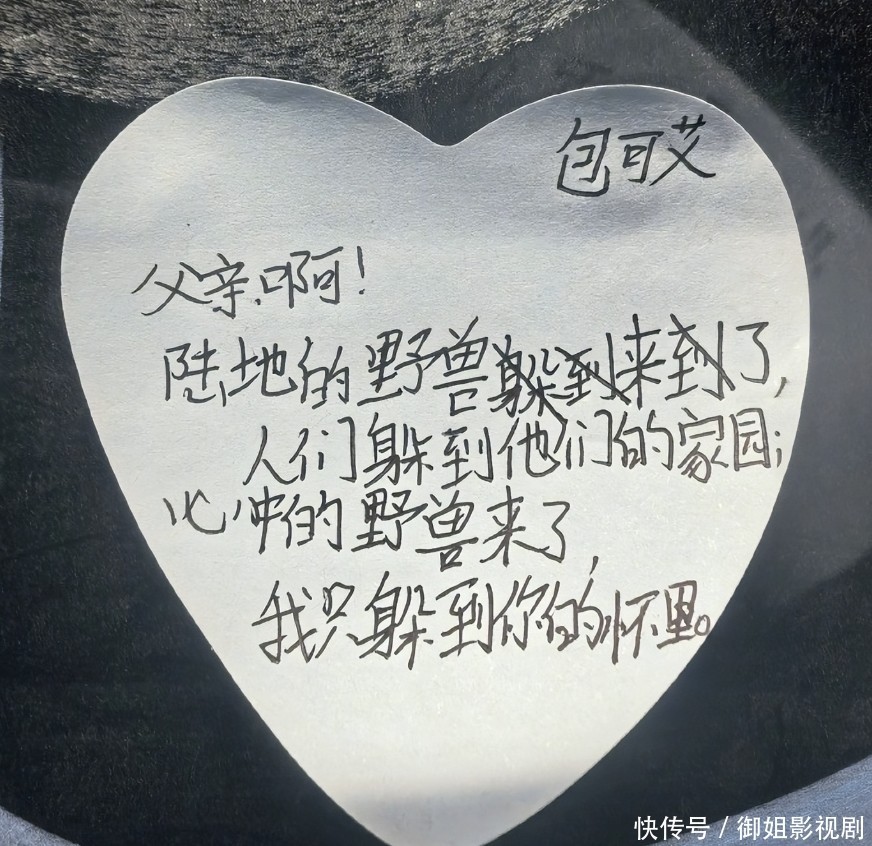 包可艾
父亲啊！
陆地的野兽躲到来到了，
人们躲到他们的家园；
心中的野兽来了，
我只躲到你的怀里。
快传号 / 御姐影视剧